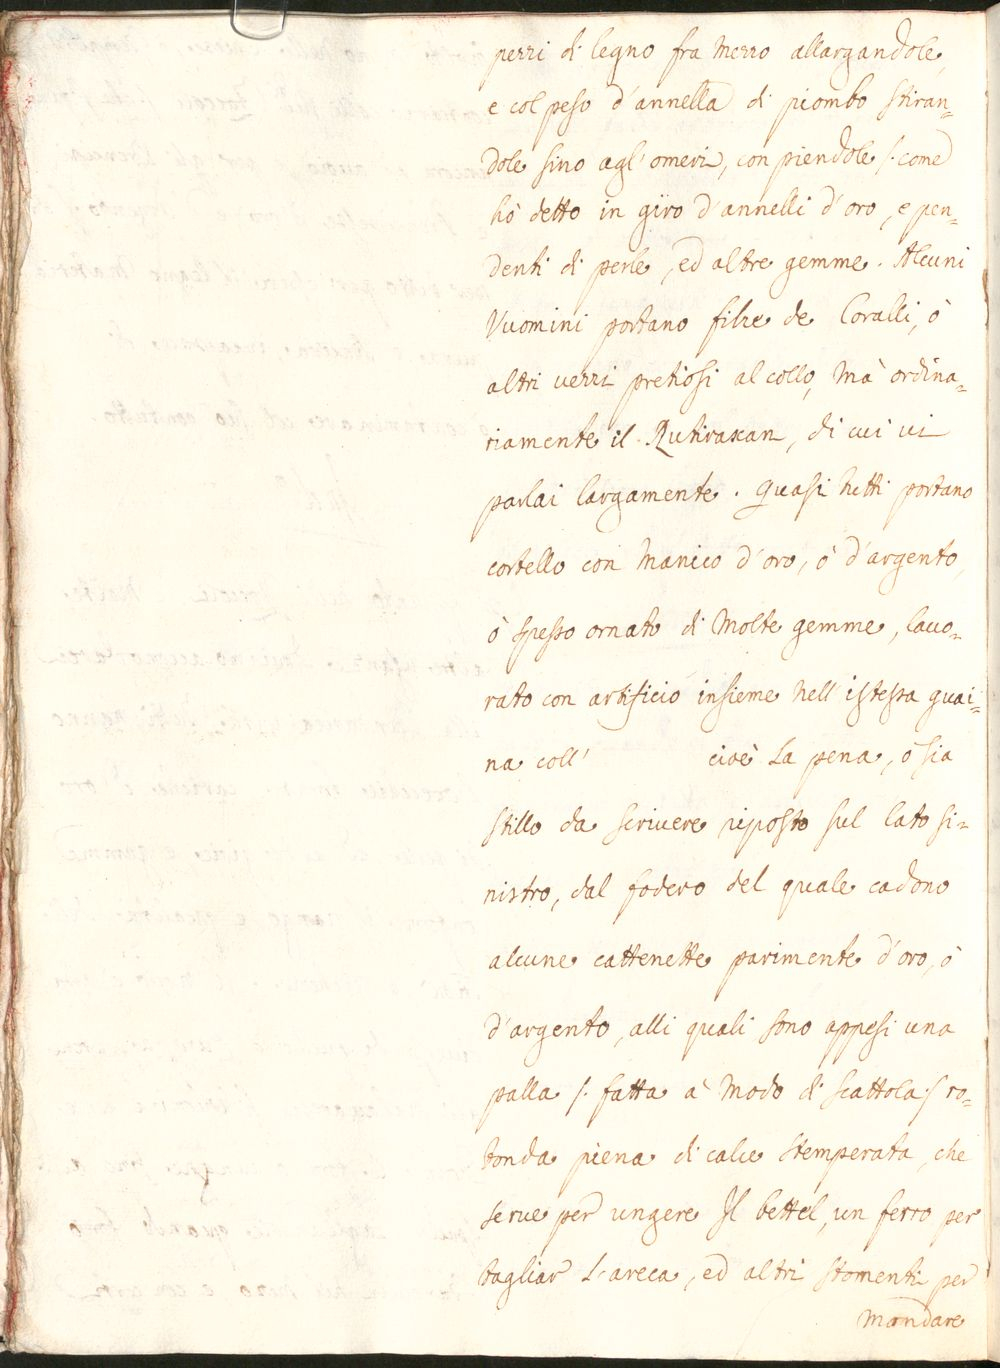 pezzi di legno fra mezzo allargandole,
e col peso d'annella di piombo stiran=
dole sino agl'omeri, con piendole /. come
hò detto in giro d'annelli d'oro, e pen=
denti di perle, ed altre gemme. Alcuni
Vuomini portano filze de Coralli, ò
altri vezzi pretiosi al collo, mà ordina=
riamente il Rutiraxan, di cui vi
parlai largamente. Quasi tutti portano
cortello con manico d'oro, ò d'argento,
ò spesso ornato di molte gemme, lauo=
rato con artificio insieme nell'istessa guai=
na coll' cioè La pena, o sia
stillo da scriuere riposto sul lato si=
nistro, dal fodero del quale cadono
alcune cattenette parimente d'oro, ò
d'argento, alli quali sono appesi una
palla /. fatta à modo di scattola ./ ro=
tonda piena di calce stemperata, che
serue per ungere Il bettel, un ferro per
tagliar L'areca, ed altri stomenti per
mandare